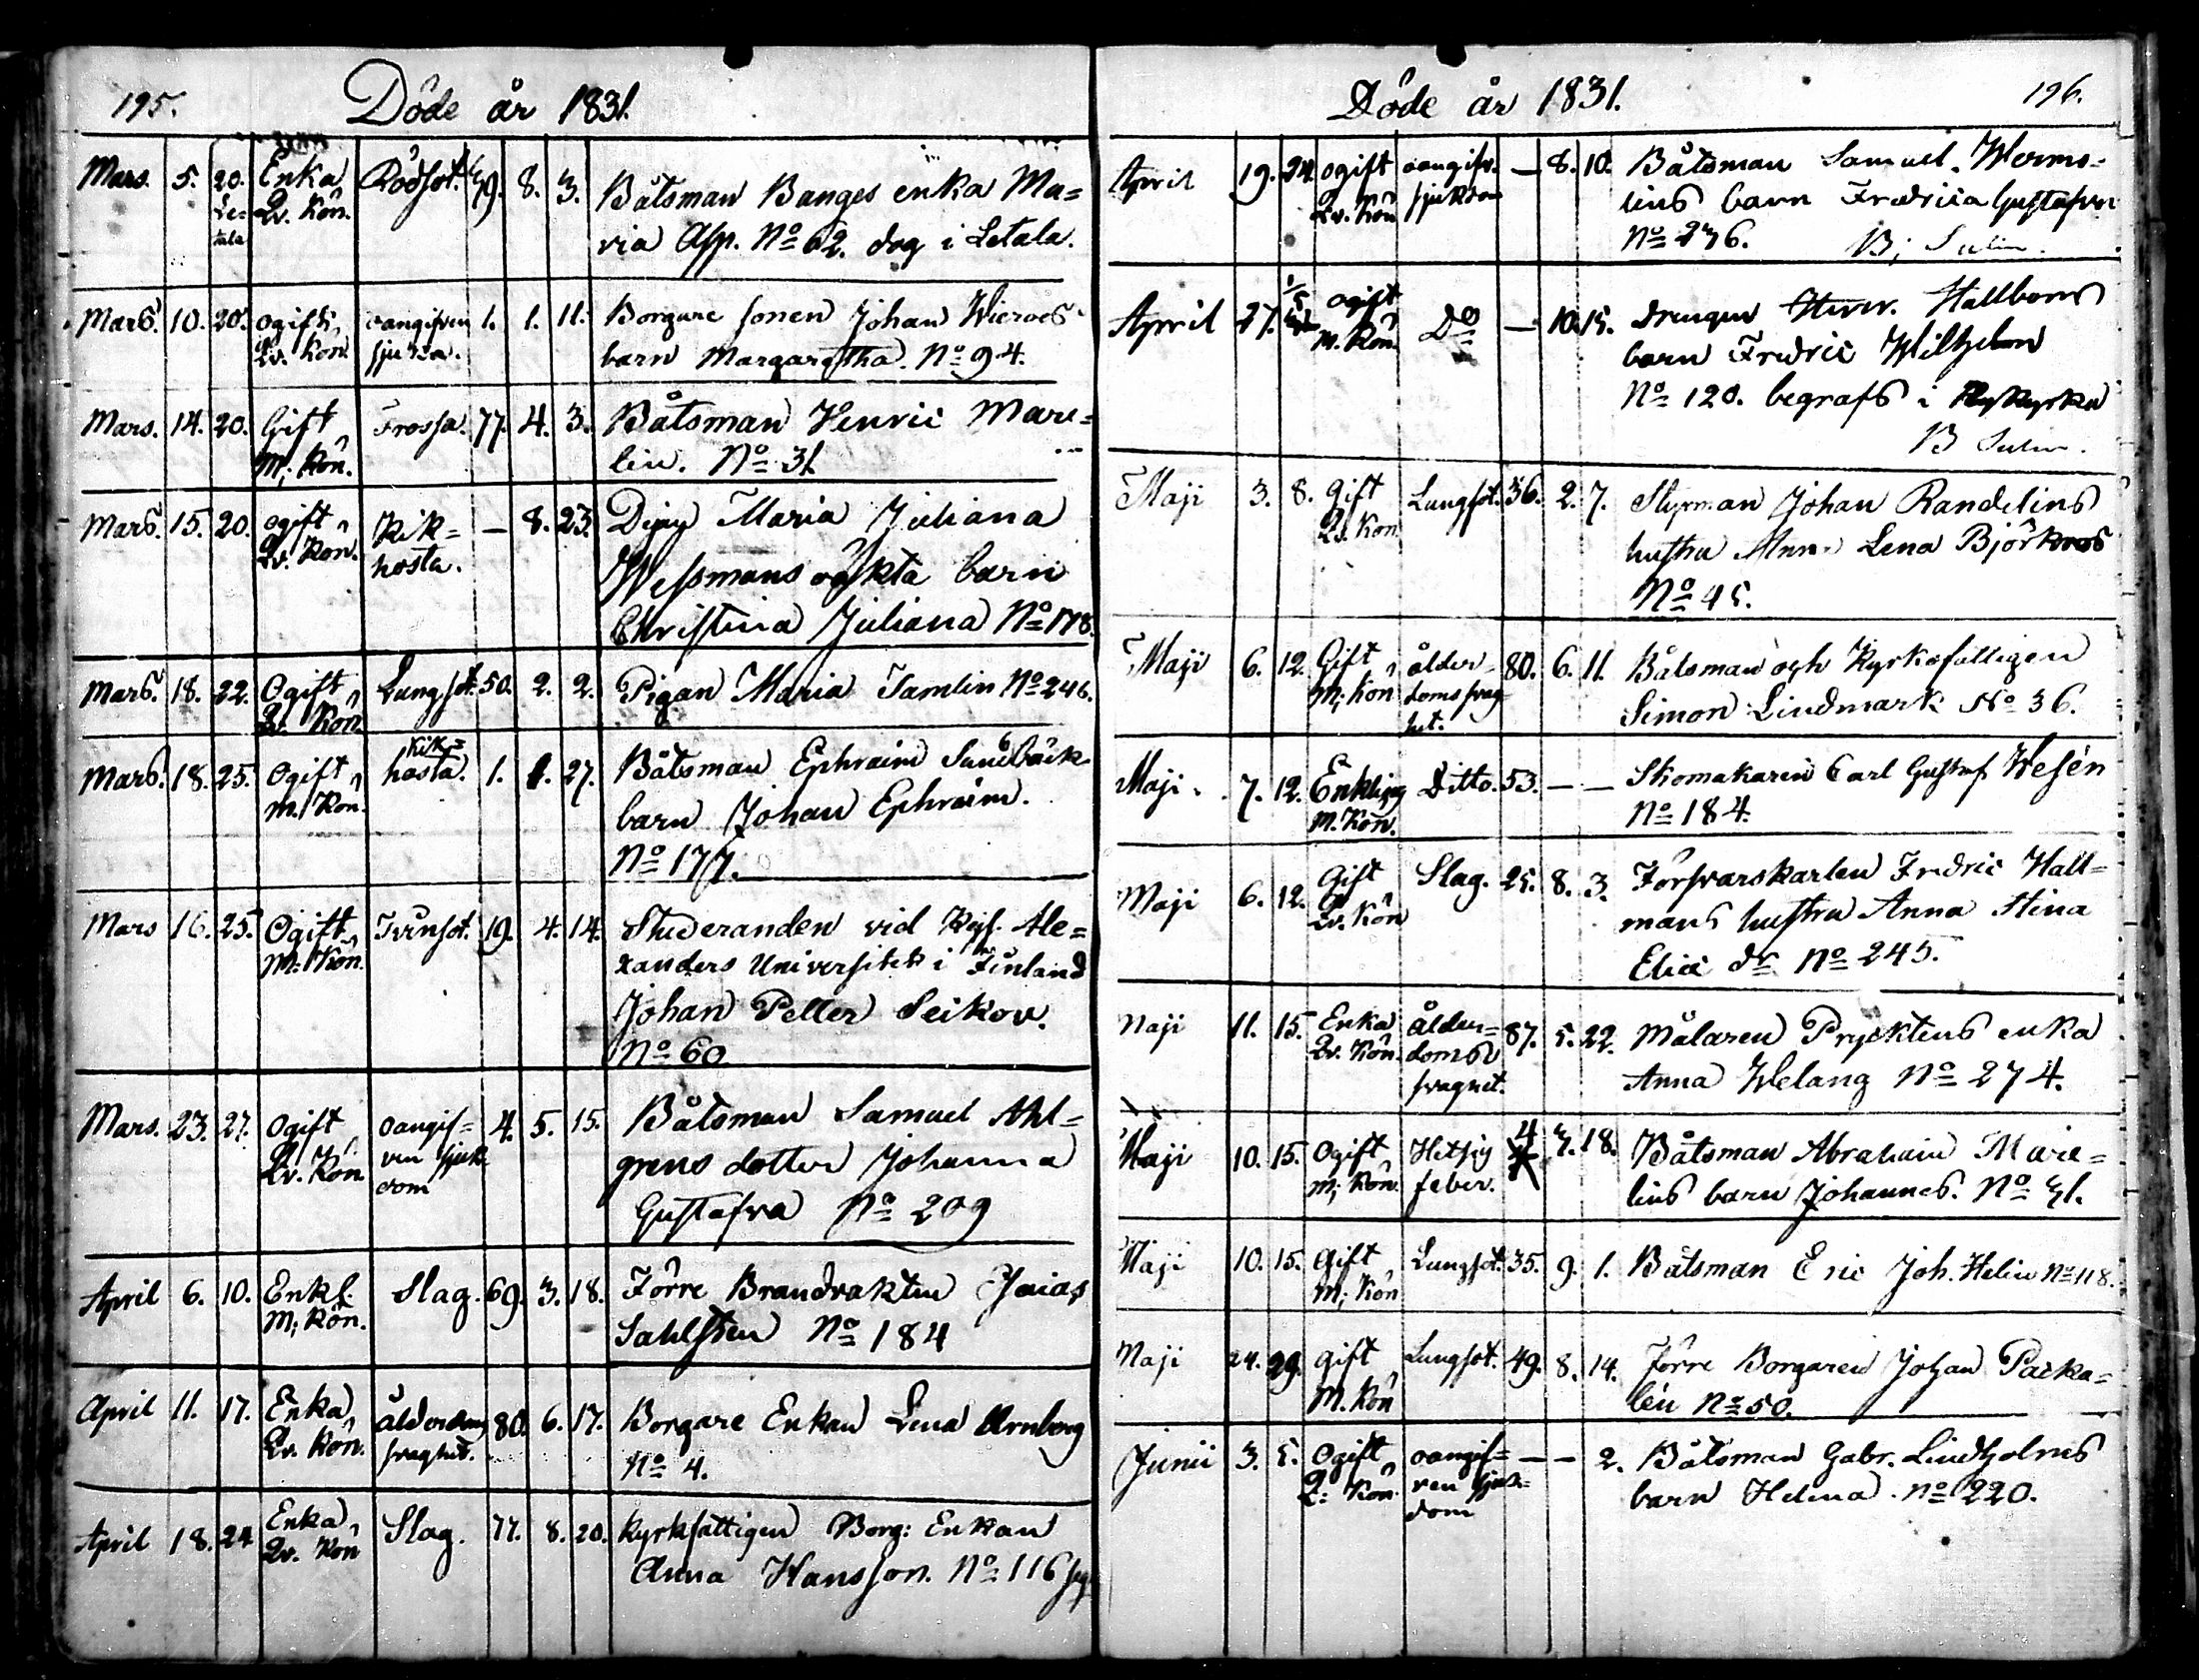 195.
Döde år 1831.
Mars. 5. 20. Enka Rödsot. 79. 8. 3. Båtsman Banges enka Ma=
Le= Qv. Kön. ria Asp. No 62. dog i Letala.
tala
Mars. 10. 20. ogift, oangifven 1. 1. 11. Borgare sonen Johan
Qv. Kön. sjukd. barn Margaretha. No 94.
Mars. 14. 20. Gift Frossa. 77. 4. 3. Båtsman Henric Mare=
M; Kön. lin. No 31
Mars. 15. 20. ogift Kik= — 8. 23. Maria Juliana
Qv. Kön. hosta. Wessmans oäkta barn
Christina Juliana No 178.
Mars. 18. 22. Ogift Lungsot. 50. 2. 2. Pigan Maria Tamlin No 246.
Qv. Kön.
Mars. 18. 25. Ogift Kik= 1. 1. 27. Båtsman Ephraim Sundbäck
M. Kön. hosta. barn Johan Ephraim.
No 177.
Mars 16. 25. Ogift Tvinsot. 19. 4. 14. Studeranden vid Kejs. Ale=
M: Kön. xanders Universitet i Finland
Johan Petter Seikow.
No 60
Mars. 23. 27. Ogift oangif= 4. 5. 15. Båtsman Samuel Ahl=
Qv. Kön ven sjuk= grens dotter Johanna
dom Gustafva No 209
April 6. 10. Enkl. Slag. 69. 3. 18. Förre Brandvakten Esaias
M; Kön. Sahlsten No 184
April 11. 17. Enka Ålderdoms 80. 6. 17. Borgare Enkan Lena Arnberg
Qv. Kön. svaghet. No 4.
April 18. 24 Enka Slag. 77. 8. 20. Kyrkfattigen Borg: Enkan
Qv. Kön Anna Hansson. No 116
Döde år 1831.
196.
April 19. 24. ogift oangifv. — 8. 10. Båtsman Samuel Werme=
Qv. Kön sjukdom lins barn Fredrica Gustafva
No 276. B; Sulin.
April 27. 1/5 ogift Do — 10. 15. Drengen Hallbons
M. Kön. barn Fredric Wilhelm
No 120. begrafs i Nykyrka
B Sulin.
Maji 3. 8. gift Lungsot. 36. 2. 7. Styrman Johan Randelins
Qv. Kön hustru Anna Lena
No 45.
Maji 6. 12. Gift ålder= 80. 6. 11. Båtsman och Kyrkofattigen
M; Kön doms svag Simon Lindmark No 36.
het.
Maji. 7. 12. Enkling Ditto. 53. — — Skomakaren Carl Gustaf Wesén
M. Kön. No 184.
Maji 6. 12. Gift Slag. 25. 8. 3. Försvarskarlen Fredric Hall=
Qv. Kön mans hustru Anna Stina
Elias dr No 245.
Maji 11. 15. Enka ålder= 87. 5. 22. Målaren Prycktens enka
Qv. Kön. doms Anna Welang No 274.
svaghet.
Maji 10. 15. Ogift Hetsig 4 7. 18. Båtsman Abraham Mare=
M; Kön. feber. lins barn Johannes. No 71.
Maji 10. 15. Gift Lungsot. 35. 9. 1. Båtsman Eric Joh. Helin No 118.
M; Kön
Maji 24. 29. gift Lungsot. 49. 8. 14. Förre Borgaren Johan Packa=
M. Kön lén No 50.
Junii 3. 5. Ogift oangif= — — 2. Båtsman Gabr. Lindholms
Q: Kön. ven sjuk= barn Helena. No 220.
dom